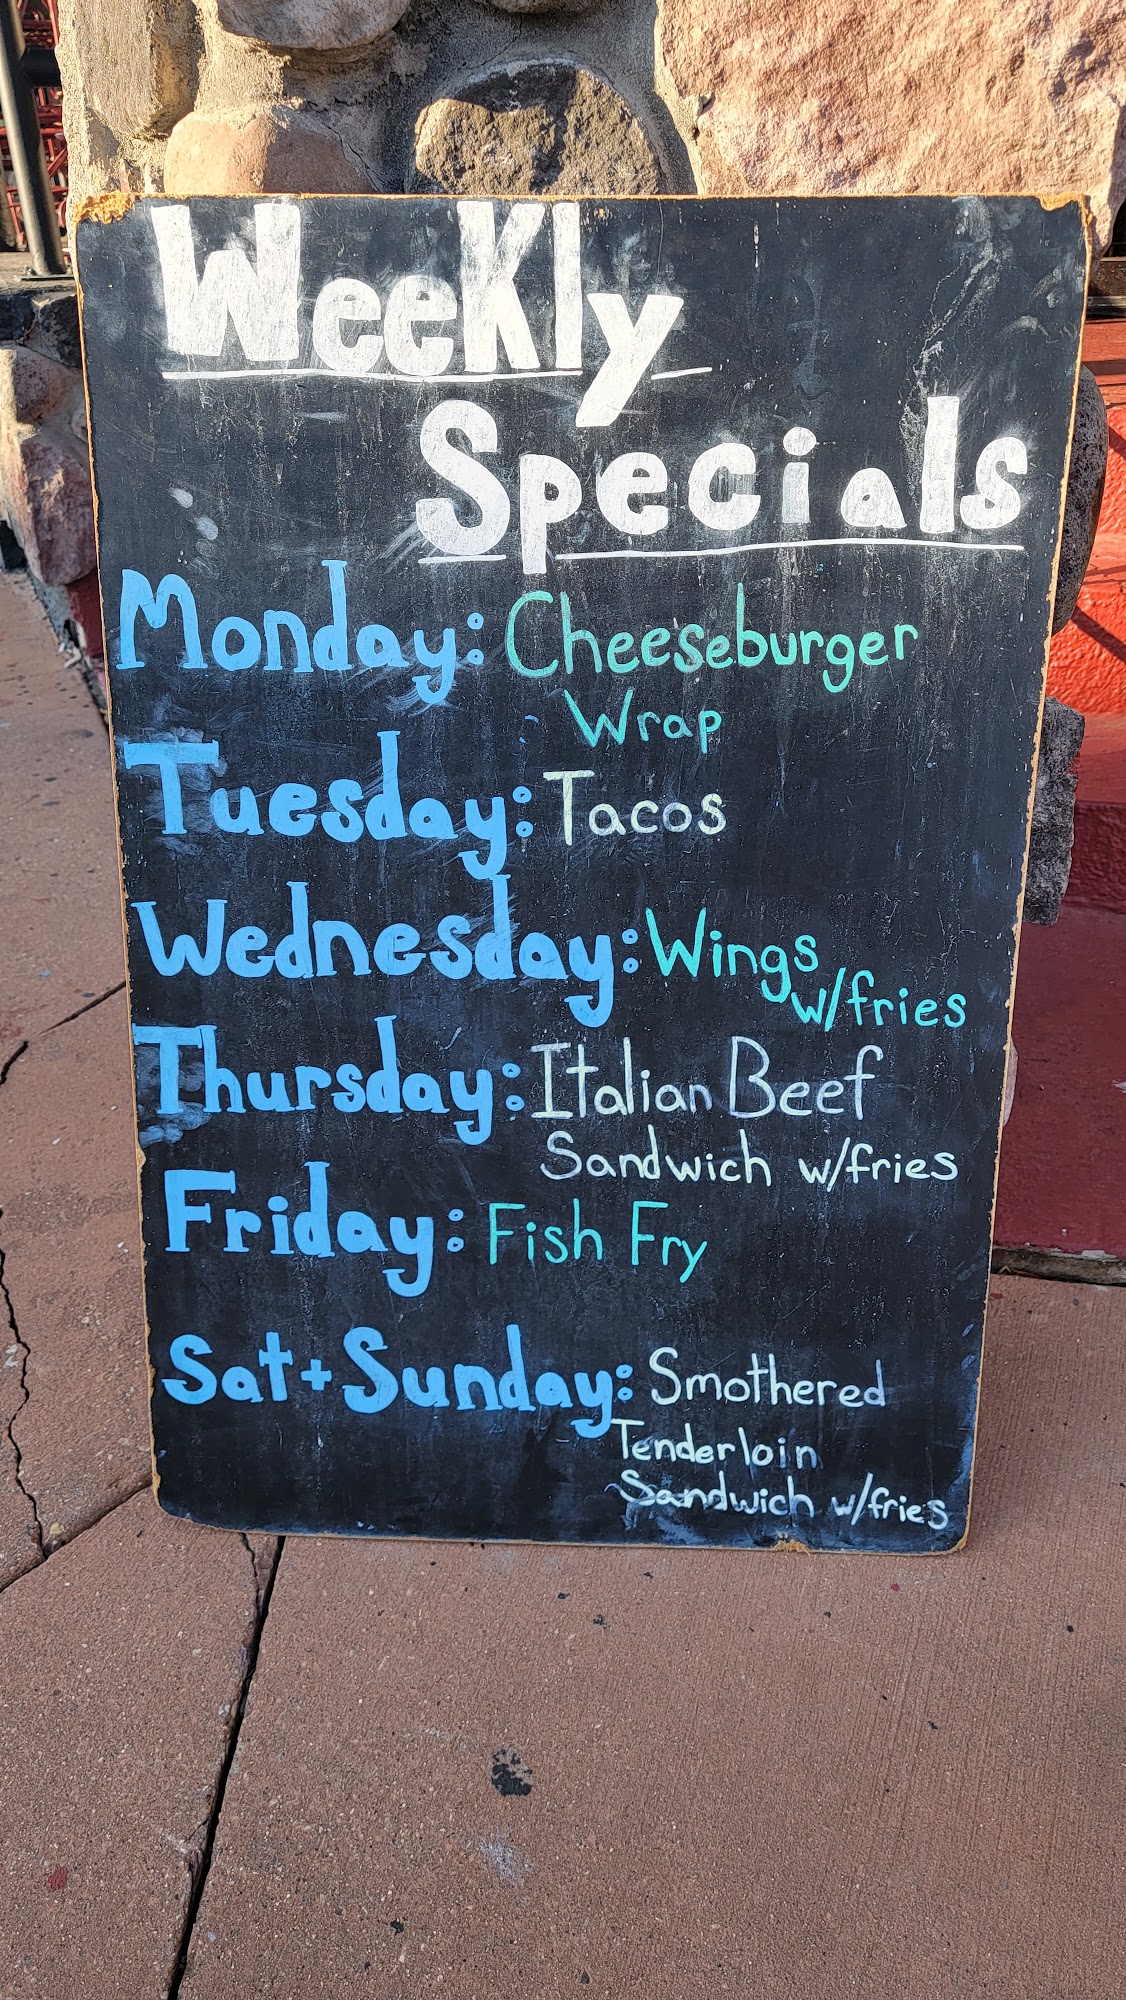 Weekly
Specials
Monday: Cheeseburger
Wrap
Tuesday: Tacos
Wednesday: Wings
w/fries
Thursday: Italian Beef
Sandwich w/fries
Friday: Fish Fry
Sat+Sunday: Smothered
Tenderloin
Sandwich w/fries